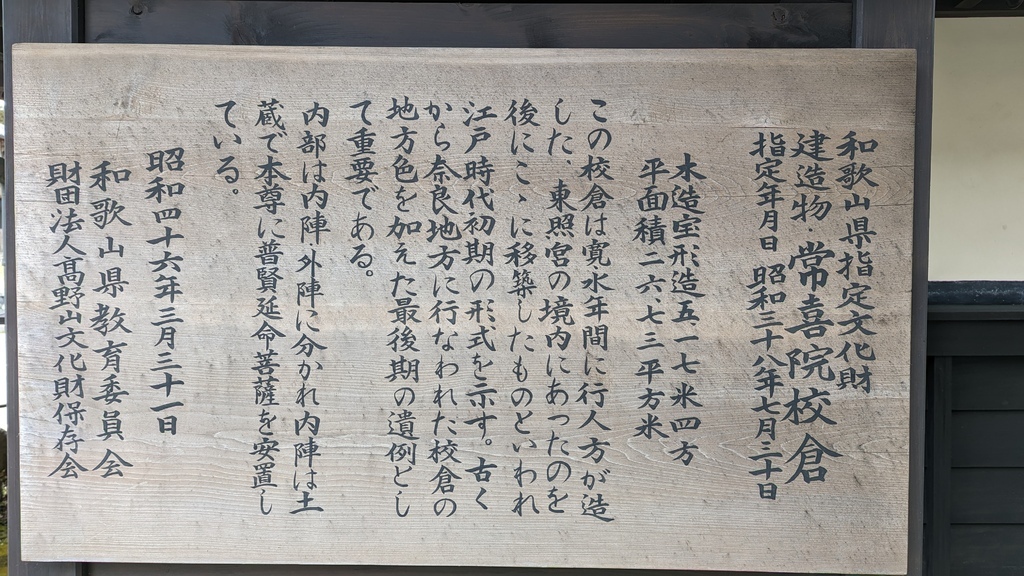 和歌山県指定文化財
建造物・常喜院校倉
指定年月日 昭和三十八年七月三十日
木造宝形造五・一七米四方
平面積二六・七三平方米
この校倉は寛永年間に行人方が造
した、東照宮の境内にあったのを
後にこゝに移築したものといわれ
江戸時代初期の形式を示す。古く
から奈良地方に行なわれた校倉の
地方色を加えた最後期の遺例とし
て重要である。
内部は内陣、外陣に分かれ内陣は土
蔵で本尊に普賢延命菩薩を安置し
ている。
昭和四十六年三月三十一日
和歌山県教育委員会
財団法人高野山文化財保存会